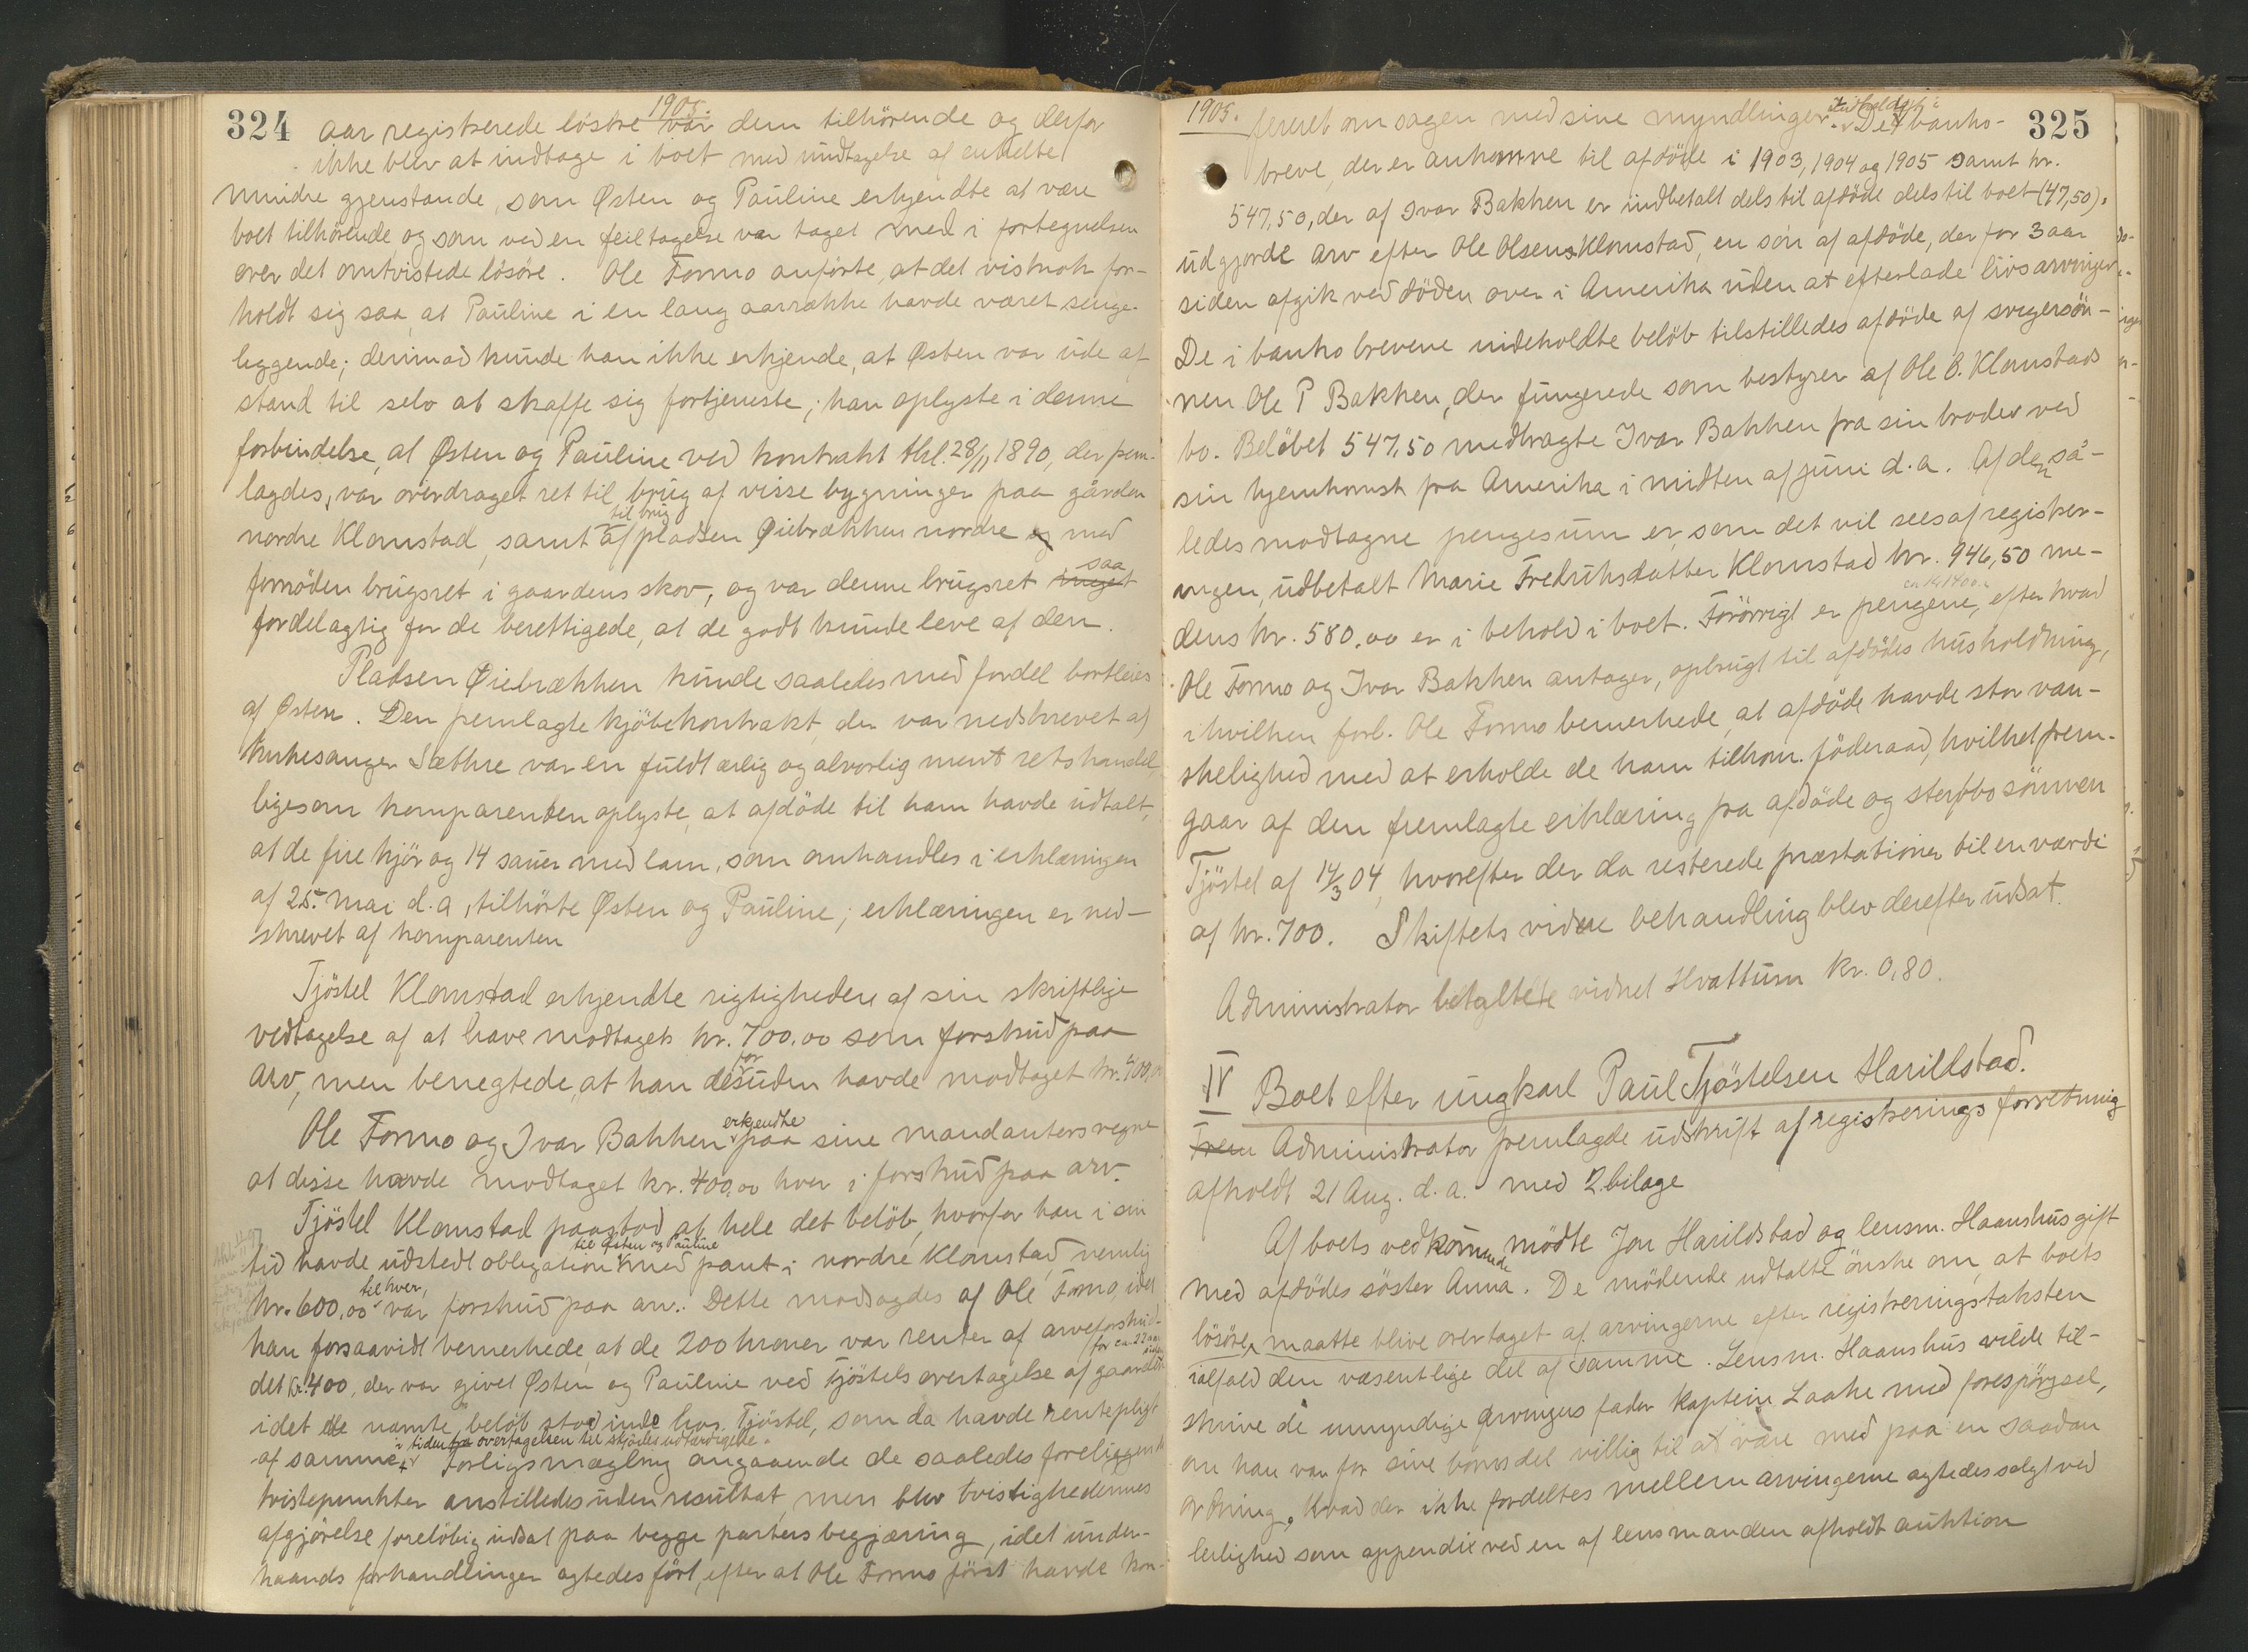 324
1905.
aar registrerede löskre var dem tilhörende og derfor
ikke blev at indtage i boet med undtagelse af enkelte
mindre gjenstande, som Østen og Pauline erkjendte at være
boet tilhörende, og som ved en feiltagelse var taget med i fortegnelsen
over det omtvistede lösöre. Ole Formo anförte, at det vistnok for-
holdt sig saa, at Pauline i en lang aarrække havde været senge-
liggende; derimod kunde han ikke erkjende, at Østen var ude af
stand til selv at skaffe sig fortjeneste; han oplyste i denne
forbindelse, at Østen og Pauline ved kontrakt thl. 28/11 1890, der frem-
lagdes, var overdraget ret til brug af visse bygninger paa gården
til brug
nordre Klomstad, samt af pladsen Øiebrækken nordre og med
saa
fornöden brugsret i gaardens skov, og var denne brugsret meget
fordelagtig for de berettigede, at de godt kunde leve af den.
Pladsen Øiebrækken kunde saaledes med fordel bortleies
af Østen. Den fremlagte kjöbekontrakt, der var nedskrevet af
kirkesanger Sæthre var en fuldt ærlig og alvorlig ment retshandel,
ligesom komparenten oplyste, at afdöde til ham havde udtalt,
at de fire kjör og 14 sauer med lam, som omhandles i erklæringen
af 25. mai d.a, tilhörte Østen og Pauline; erklæringen er ned-
skrevet af komparenten
Tjöstel Klomstad erkjendte rigtigheden af sin skriftlige
vedtagelse af at have modtaget kr. 700.00 som forskud paa
for
arv, men benegtede, at han desuden havde modtaget kr. 400,00
erkjendte
Ole Formo og Ivar Bakken paa sine mandanters vegne
at disse havde modtaget kr. 400,00 hver i forskud paa arv.
Tjöstel Klomstad paastod at hele det belöb, hvorfor han i sin
til Østen og Pauline
tid havde udstedt obligation med pant i nordre Klomstad, nemlig
til hver,
kr. 600,00 var forskud paa arv. Dette modsagdes af Ole Formo, idet
han forsaavidt bemerkede, at de 200 kroner var renter af arveforskud-
for ca. 22 aar siden
det kr. 400, der var givet Østen og Pauline ved Tjöstels overtagelse af gaarden
idet de nævnte belöb stod inde hos Tjöstel, som da havde rentepligt
i tiden fra overtagelsen til skjödes udfærdigelse.
af samme. Forligsmægling angaaende de saaledes foreliggende
tvistepunkter anstilledes uden resultat, men blev tvistighedernes
afgjörelse forelöbig udsat paa begge parters begjæring, idet under-
haands forhandlinger agtedes fört, efter at Ole Formo först havde kon-
325
1905.
indholdet i
fereret om sagen med sine myndlinger. De banko-
breve, der er ankomne til afdöde i 1903, 1904 og 1905 samt kr.
547,50, der af Ivar Bakken er indbetalt dels til afdöde dels til boet (47,50).
udgjorde arv efter Ole Olsen Klomstad, en sön af afdöde, der for 3 aar
siden afgik ved döden over i Amerika uden at efterlade livsarvinger.
De i banko brevene indeholdte belöb tilstilledes afdöde af svigersön-
nen Ole P Bakken, der fungerede som bestyrer af Ole O. Klomstads
bo. Belöbet 547,50 medbragte Ivar Bakken fra sin broder ved
sin hjemkomst fra Amerika i midten af juni d.a. Af den så-
ledes modtagne pengesum er, som det vil sees af registrer-
ingen, udbetalt Marie Fredriksdatter Klomstad kr. 946,50 me-
dens kr. 580.00 er i behold i boet. Forövrigt er pengene, efter hvad
Ole Formo og Ivar Bakken antager, opbrugt til afdödes husholdning,
i hvilken forb. Ole Formo bemerkede, at afdöde havde stor van-
skelighed med at erholde de ham tilkom. föderaad, hvilket frem-
gaar af den fremlagte erklæring fra afdöde og sterbbo sönnen
Tjöstel af 14/3 04, hvorefter der da resterede præstationer til en værdi
af kr. 700. Skiftets videre behandling blev derefter udsat.
Administrator betaltede vidnet Hvattum kr. 0,80.
IV Boet efter ungkarl Paul Tjöstelsen Harildstad.
Frem Administrator fremlagde udskrift af registrerings forretning
afholdt 21 Aug. d.a. med 2 bilage
Af boets vedkommende mödte Jon Harildstad og lensm. Haanshus gift
med afdödes söster Anna. De mödende udtalte önske om, at boets
lösöre maatte blive overtaget af arvingerne efter registreringstaksten
ialfald den væsentlige del af samme. Lensm. Haanshus vilde til-
skrive de umyndige arvingers fader kaptein Laake med forespörgsel,
om han var for sine börns del villig til at være med paa en saadan
ordning. Hvad der ikke fordeltes mellem arvingerne agtedes solgt ved
leilighed som appendix ved en af lensmanden afholdt auktion